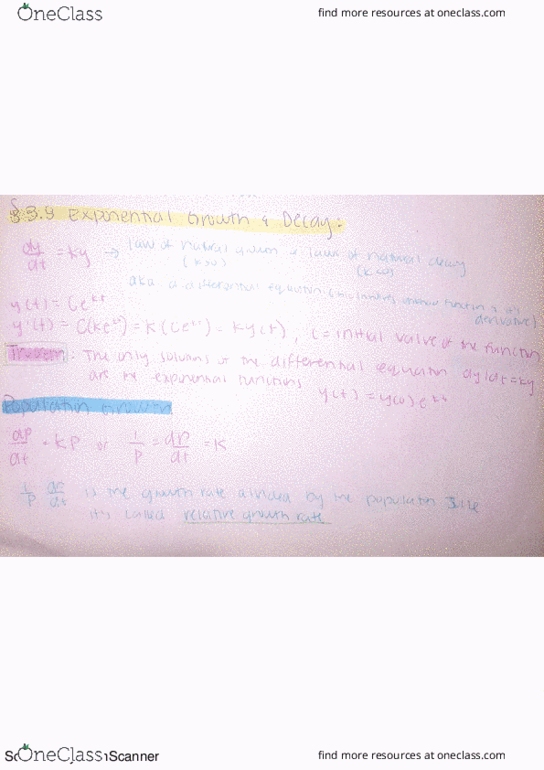 OneClass
find more resources at oneclass.com
§ 3.8 Exponential Growth & Decay:
dy/dt = ky → law of natural growth (k>0) + law of natural decay (k<0)
aka a differential equation (involves unknown function & it's derivative)
y(t) = Ce^kt
y'(t) = C(ke^kt) = K(Ce^kt) = ky(t), C = initial value of the function
Theorem: The only solutns of the differential equation dy/dt = ky
are the exponential functions
y(t) = y(0)e^kt
Population Growth
dP/dt = KP or 1/P = dP/dt = K
1/P dP/dt is the growth rate divided by the population size
it's called relative growth rate
OneClass
Scanner
find more resources at oneclass.com